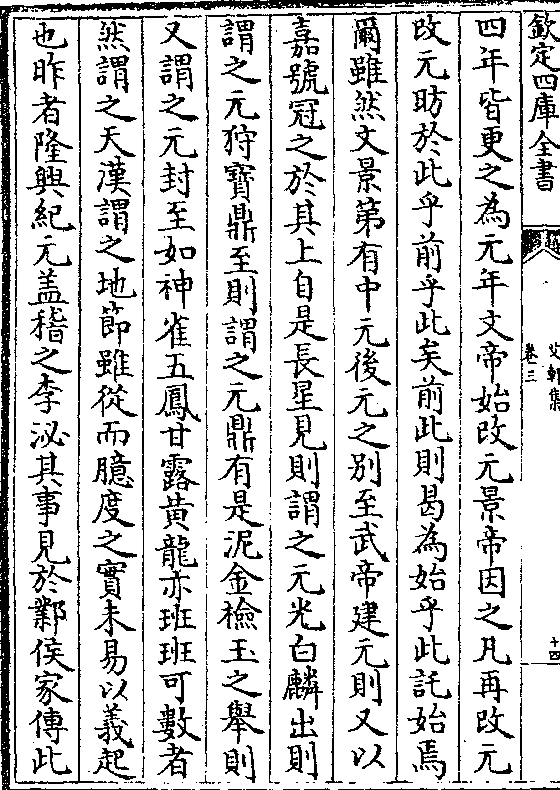 欽定四庫全書
艾軒集
卷三
十四
四年皆更之為元年文帝始改元景帝因之凡再改元
改元昉於此乎前乎此矣前此則曷為始乎此託始焉
爾雖然文景第有中元後元之别至武帝建元則又以
嘉號冠之於其上自是長星見則謂之元光白麟出則
謂之元狩寶鼎至則謂之元鼎有是泥金檢玉之舉則
又謂之元封至如神雀五鳳甘露黄龍亦班班可數者
然謂之天漢謂之地節雖從而臆度之實未易以義起
也昨者隆興紀元盖稽之李泌其事見於鄴侯家傳此